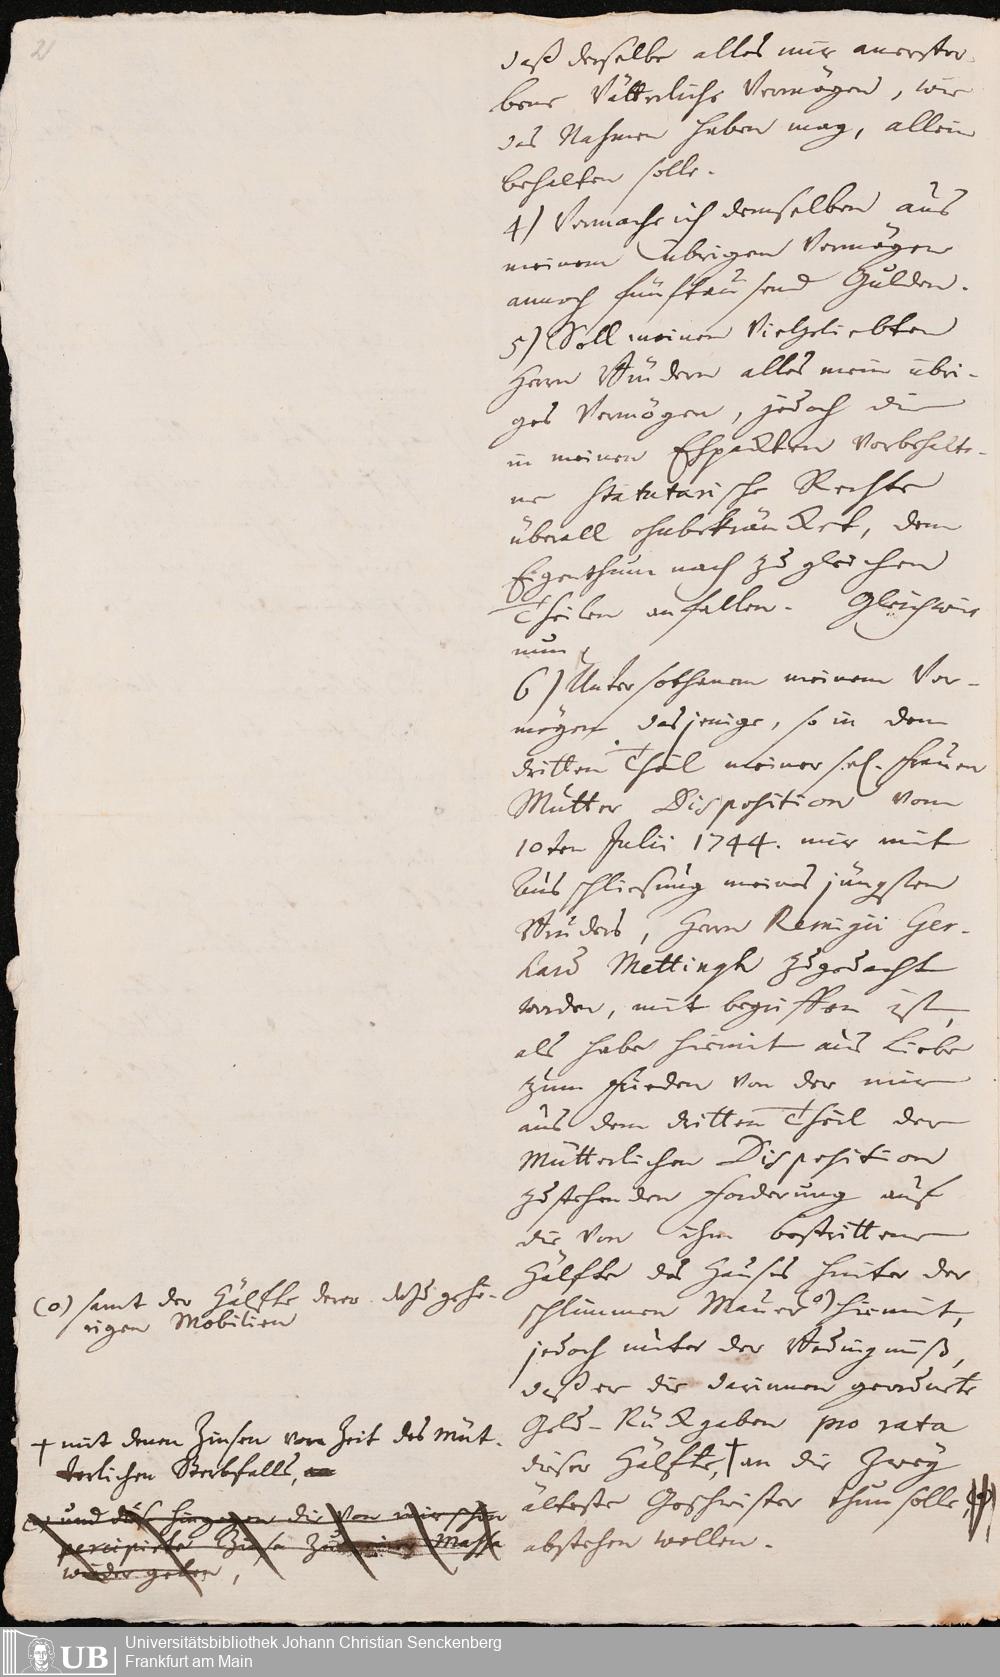 2
daß derselbe alles mir anerstor-
bene Vätterliche Vermögen, wie
das Nahmen haben mag, allein
behalten solle.
4) Vermache ich demselben aus
meinem übrigen Vermögen
annoch fünftausend Gulden.
5) Soll meinen Vielgeliebten
Herrn Brüdern alles mein übri-
ges Vermögen, jedoch die
in meinen Ehpackten vorbehalte-
ne statutarische Rechte
überall ohnbekräncket, dem
Eigenthum nach zu gleichen
Theilen anfallen. Gleichwie
nun
6) Unter sothanem meinem Ver-
mögen dasjenige, so in dem
dritten Theil meiner sel. Frauen
Mutter Disposition vom
10ten Julii 1744. mir mit
Ausschliesung meines jüngsten
Bruders, Herrn Remigii Ger-
hard Mettingh zugedacht
worden, mit begriffen ist,
als habe hiemit aus Liebe
zum Frieden von der mir
aus dem dritten Theil der
Mütterlichen Disposition
zustehenden Forderung auf
die von ihm bestrittene
Hälfte des Hauses hinter der
schlimmen Mauer (o) hiemit,
jedoch unter der Bedingnuß,
daß er die darinnen geordnete
Geld-Rückgaben pro rata
dieser Hälfte, † an die Zwey
älteste Geschwister thun solle,
abstehen wollen.
(o) samt der Hälfte derer dazu gehö-
rigen Mobilien
† mit denen Zinsen von Zeit des Müt-
terlichen Sterbfalls,
und daß hingegen die von mir schon
percipirte Zinse zu Massa
wieder geben,
UB Universitätsbibliothek Johann Christian Senckenberg
Frankfurt am Main